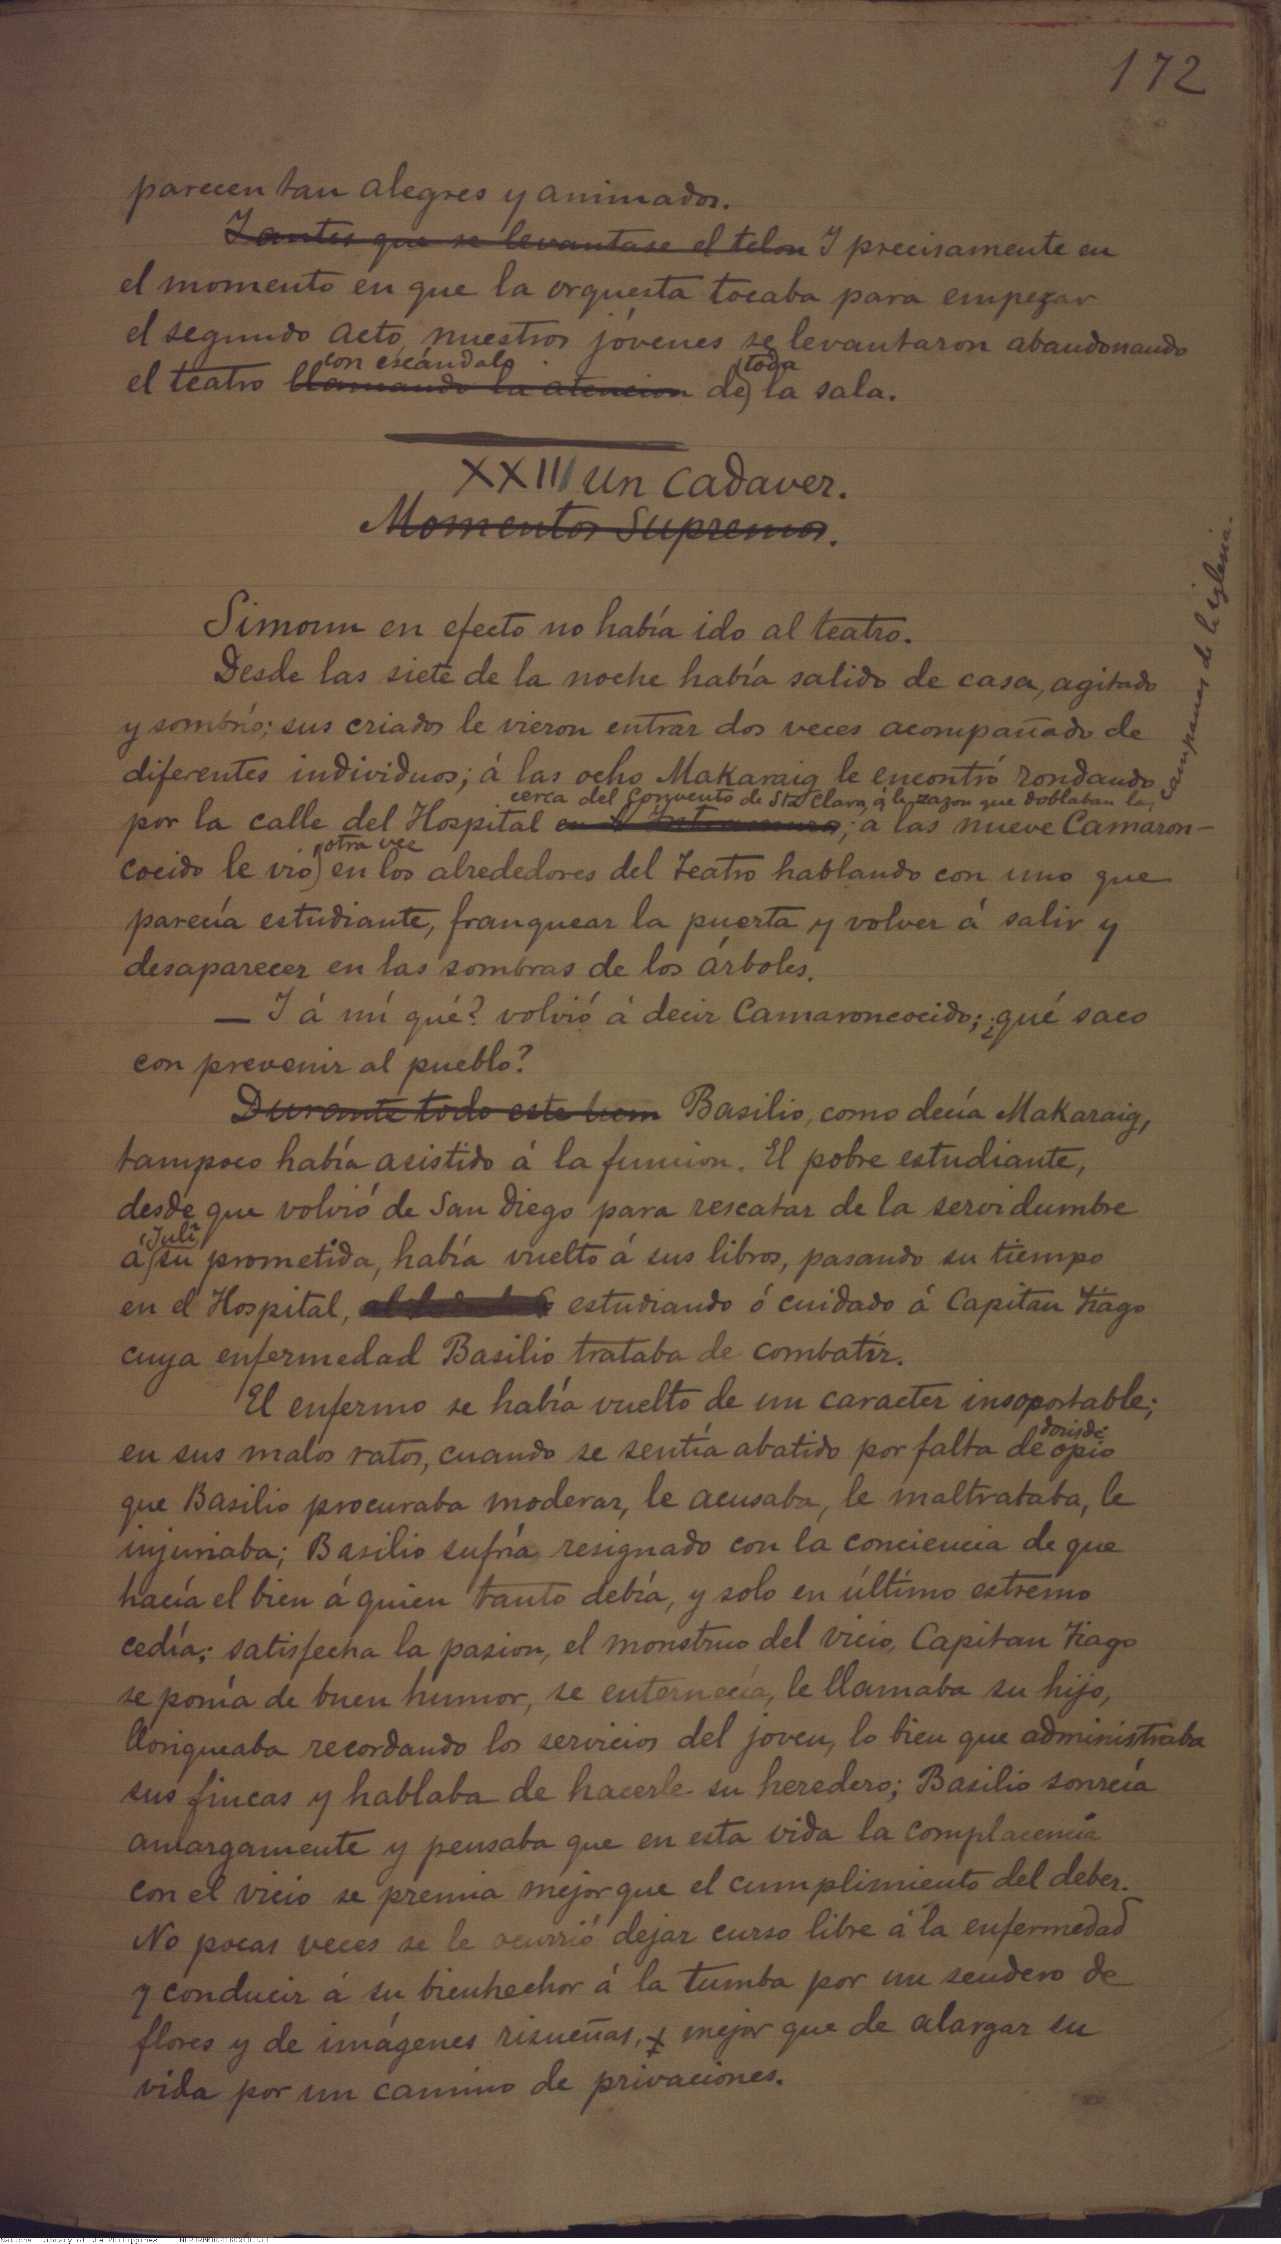 172
parecen tan alegres y animados.
Y antes que se levantase el telon Y precisamente en
el momento en que la orquesta tocaba para empezar
el segundo acto, nuestros jóvenes se levantaron abandonando
con escándalo toda
el teatro llamando la atencion de la sala.
XXIII Un cadaver.
Momentos Supremos.
Simoun en efecto no había ido al teatro.
Desde las siete de la noche había salido de casa, agitado
y sombrío; sus criados le vieron entrar dos veces acompañado de
diferentes individuos; á las ocho Makaraig le encontró rondando
cerca del Convento de Sta Clara, á la zazon que doblaban las
campanas de la iglesia.
por la calle del Hospital en; á las nueve Camaron-
otra vez
cocido le vió en los alrededores del Teatro hablando con uno que
parecía estudiante, franquear la puerta y volver á salir y
desaparecer en las sombras de los árboles.
— Y á mí qué? volvió á decir Camaroncocido; ¿qué saco
con prevenir al pueblo?
Durante todo este tiem Basilio, como decía Makaraig,
tampoco había asistido á la funcion. El pobre estudiante,
desde que volvió de San Diego para rescatar de la servidumbre
Julî
á su prometida, había vuelto á sus libros, pasando su tiempo
en el Hospital, estudiando ó cuidado á Capitan Tiago
cuya enfermedad Basilio trataba de combatir.
El enfermo se había vuelto de un caracter insoportable;
dosis de
en sus malos ratos, cuando se sentía abatido por falta de opio
que Basilio procuraba moderar, le acusaba, le maltrataba, le
injuriaba; Basilio sufría resignado con la conciencia de que
hacía el bien á quien tanto debía, y solo en último estremo
cedía; satisfecha la pasion, el monstruo del vicio, Capitan Tiago
se ponía de buen humor, se enternecía, le llamaba su hijo,
lloriqueaba recordando los servicios del joven, lo bien que administraba
sus fincas y hablaba de hacerle su heredero; Basilio sonreía
amargamente y pensaba que en esta vida la complacencia
con el vicio se premia mejor que el cumplimiento del deber.
No pocas veces se le ocurrió dejar curso libre á la enfermedad
y conducir á su bienhechor á la tumba por un sendero de
flores y de imágenes risueñas, mejor que de alargar su
vida por un camino de privaciones.